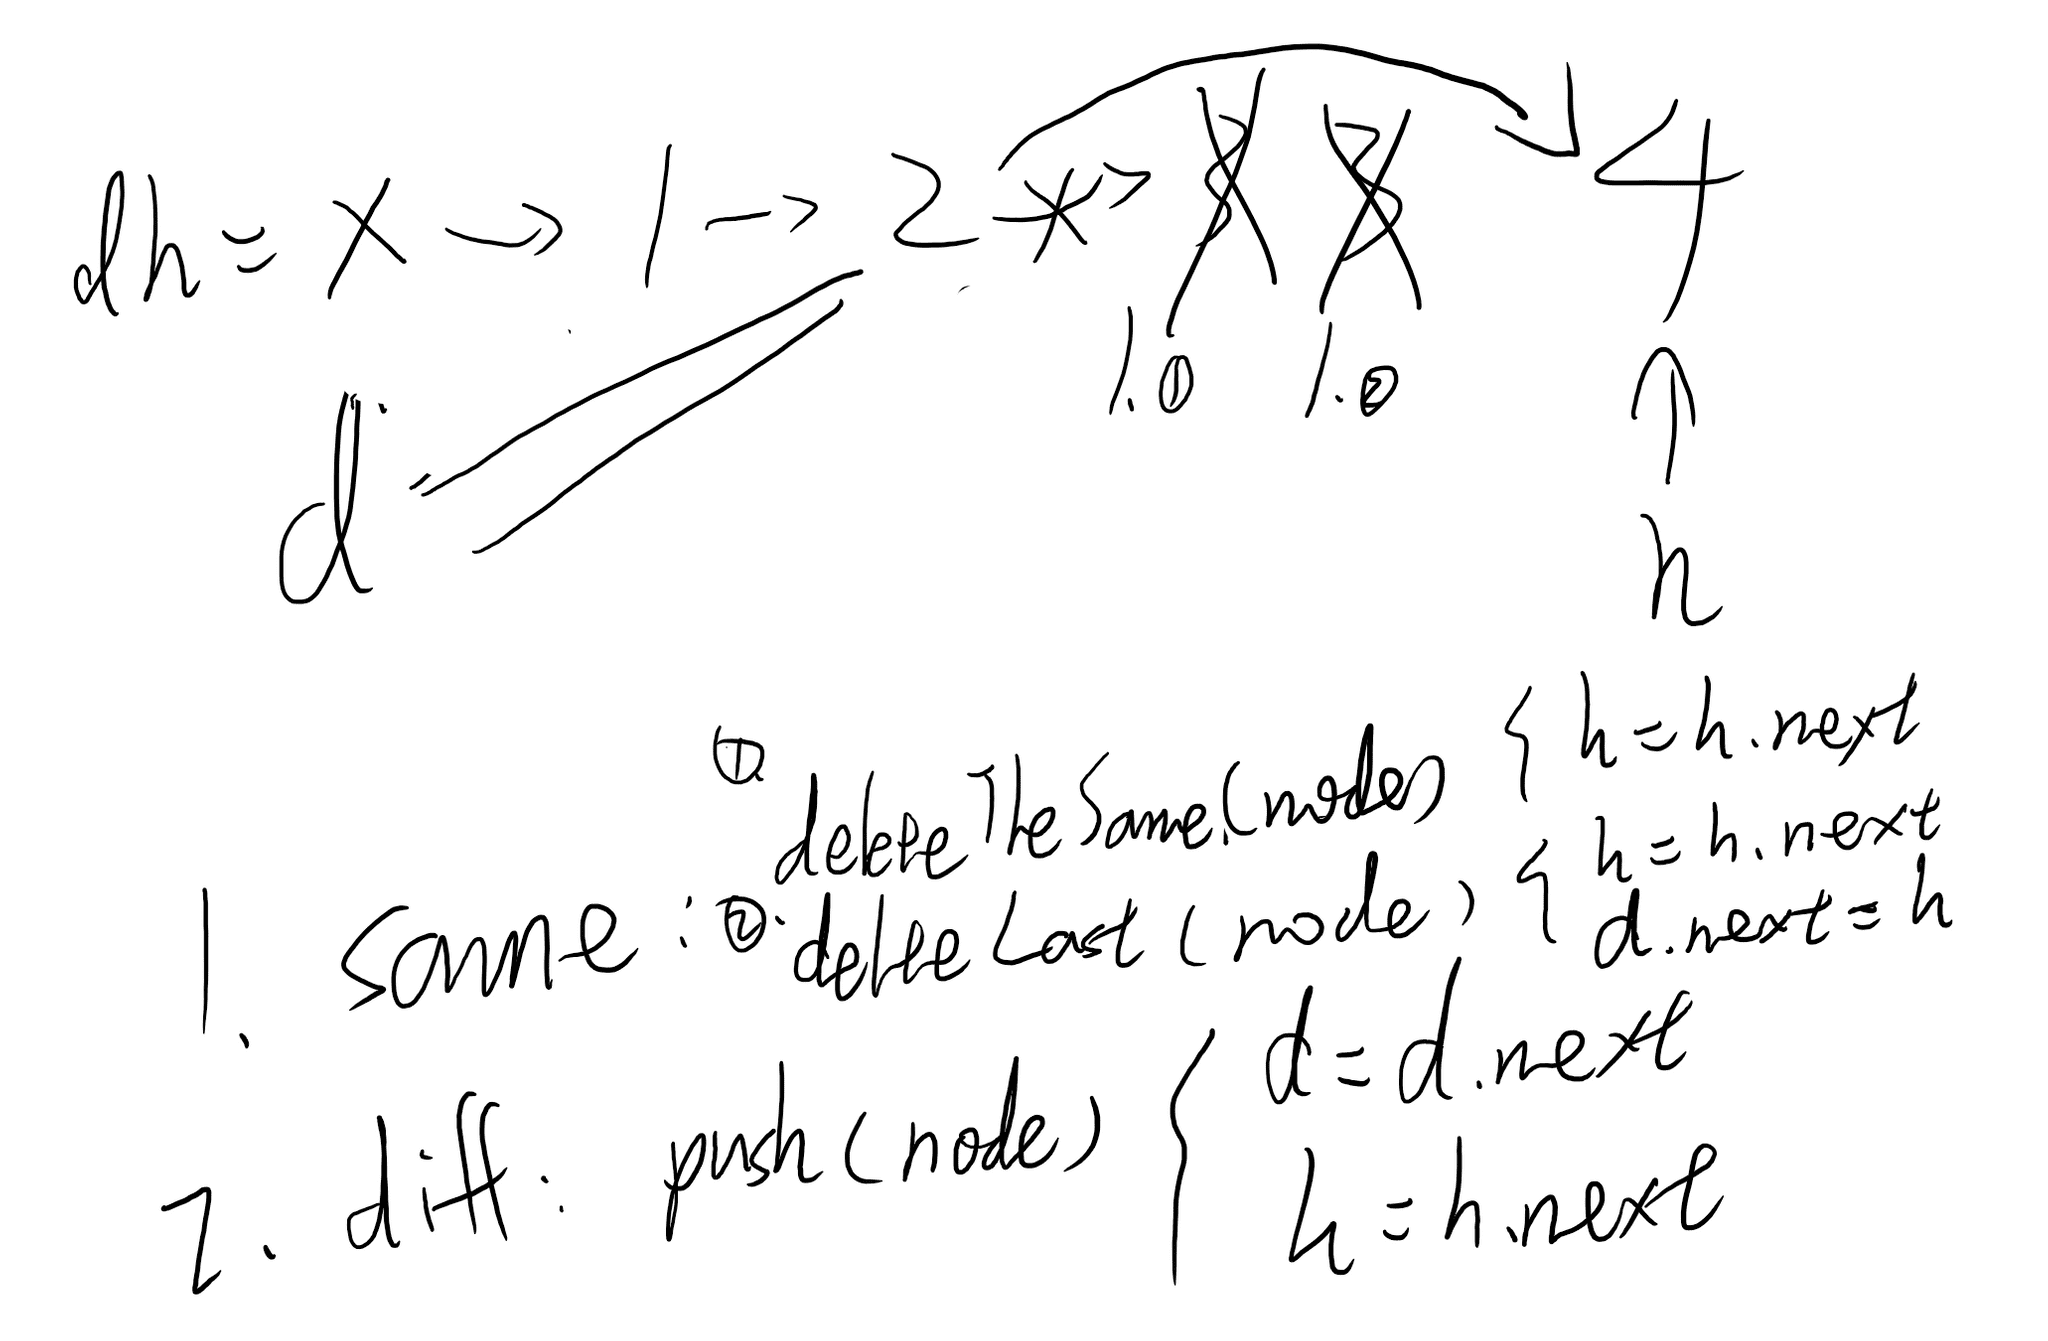 dh = x → 1 → 2 → 3 3 4
1.① 1.②
d
h
① deleteTheSame(node) { h = h.next
1. same : ② deleteLast(node) { h = h.next
d.next = h
2. diff : push(node) { d = d.next
h = h.next